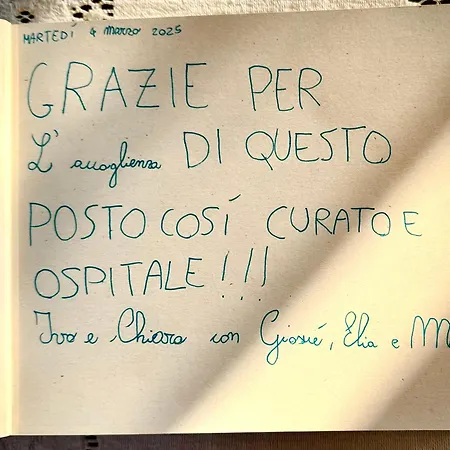 MARTEDÌ 4 MARZO 2025
GRAZIE PER
L' accoglienza DI QUESTO
POSTO COSÍ CURATO E
OSPITALE!!!
Ivo e Chiara con Giosué, Elia e M